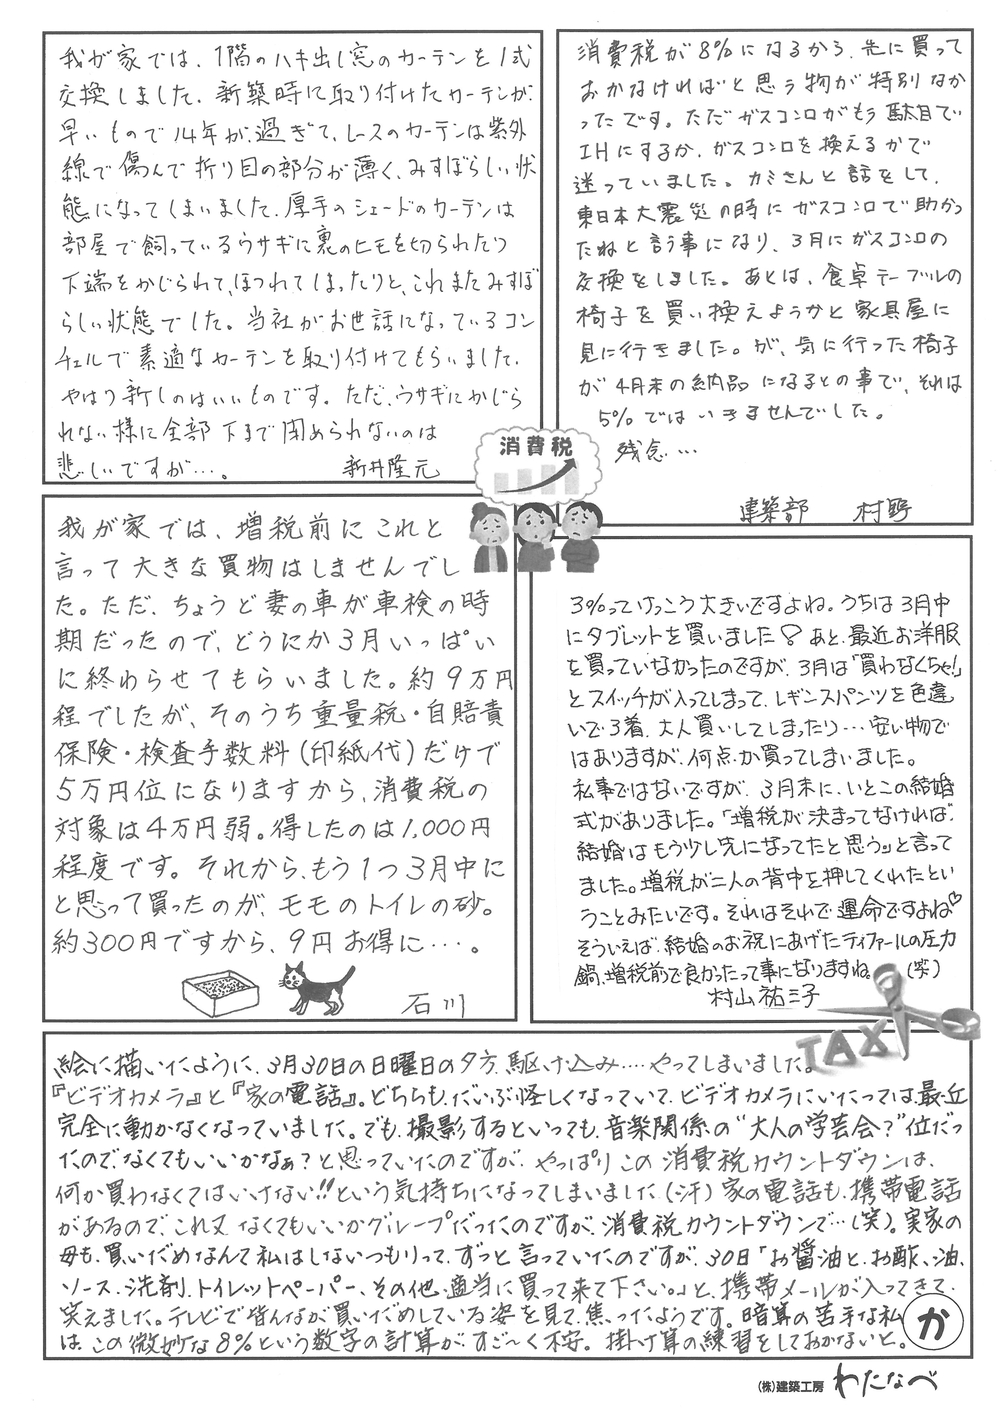 我が家では、1階のハキ出し窓のカーテンを1式
交換しました。新築時に取り付けたカーテンが、
早いもので14年が過ぎて、レースのカーテンは紫外
線で傷んで折り目の部分が薄く、みすぼらしい状
態になってしまいました。厚手のシェードのカーテンは
部屋で飼っているウサギに裏のヒモを切られたり
下端をかじられて、ほつれてしまったりと、これまたみすぼ
らしい状態でした。当社がお世話になっているコン
チェルで素適なカーテンを取り付けてもらいました。
やはり新しのはいいものです。ただ、ウサギにかじら
れない様に全部下まで閉められないのは
悲しいですが…。 新井隆元
消費税が8%になるから、先に買って
おかなければと思う物が特別なか
ったです。ただガスコンロがもう駄目で
IHにするか、ガスコンロを換えるかで
迷っていました。カミさんと話をして、
東日本大震災の時にガスコンロで助かっ
たねと言う事になり、3月にガスコンロの
交換をしました。あとは、食卓テーブルの
椅子を買い換えようかと家具屋に
見に行きました。が、気に行った椅子
が4月末の納品になるとの事で、それは
5%ではいきませんでした。
残念…
建築部 村野
消費税
我が家では、増税前にこれと
言って大きな買物はしませんでし
た。ただ、ちょうど妻の車が車検の時
期だったので、どうにか3月いっぱい
に終わらせてもらいました。約9万円
程でしたが、そのうち重量税・自賠責
保険・検査手数料(印紙代)だけで
5万円位になりますから、消費税の
対象は4万円弱。得したのは1,000円
程度です。それから、もう1つ3月中に
と思って買ったのが、モモのトイレの砂。
約300円ですから、9円お得に…。
石川
3%ってけっこう大きいですよね。うちは3月中
にタブレットを買いました♪あと、最近お洋服
を買っていなかったのですが、3月は「買わなくちゃ!」
とスイッチが入ってしまって、レギンスパンツを色違
いで3着、大人買いしてしまったり…安い物で
はありますが、何点か買ってしまいました。
私事ではないですが、3月末に、いとこの結婚
式がありました。「増税が決まってなければ、
結婚はもう少し先になってたと思う」と言って
ました。増税が二人の背中を押してくれたとい
うことみたいです。それはそれで運命ですよね♡
そういえば、結婚のお祝にあげたティファールの圧力
鍋、増税前で良かったって事になりますね。(笑)
村山祐三子
TAX
絵に描いたように、3月30日の日曜日の夕方、駆け込み‥‥やってしまいました。
『ビデオカメラ』と『家の電話』。どちらも、だいぶ怪しくなっていて、ビデオカメラにいたっては、最近
完全に動かなくなっていました。でも、撮影するといっても、音楽関係の“大人の学芸会?”位だっ
たので、なくてもいいかなぁ?と思っていたのですが、やっぱりこの消費税カウントダウンは、
何か買わなくてはいけない!!という気持ちになってしまいました(汗)家の電話も、携帯電話
があるので、これ又なくてもいいかグループだったのですが、消費税カウントダウンで…(笑)。実家の
母も、買いだめなんて私はしないつもりって、ずっと言っていたのですが、30日「お醤油と、お酢、油、
ソース、洗剤、トイレットペーパー、その他、適当に買って来て下さい。」と、携帯メールが入ってきて、
笑えました。テレビで皆んなが買いだめしている姿を見て、焦ったようです。暗算の苦手な私
は、この微妙な8%という数字の計算が、すご～く不安。掛け算の練習をしておかないと。
か
(株)建築工房 わたなべ